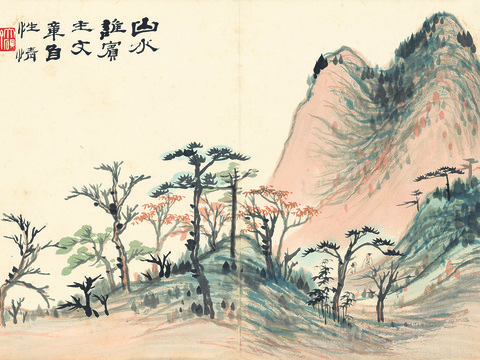 山水
誰賓
主文
章自
性情